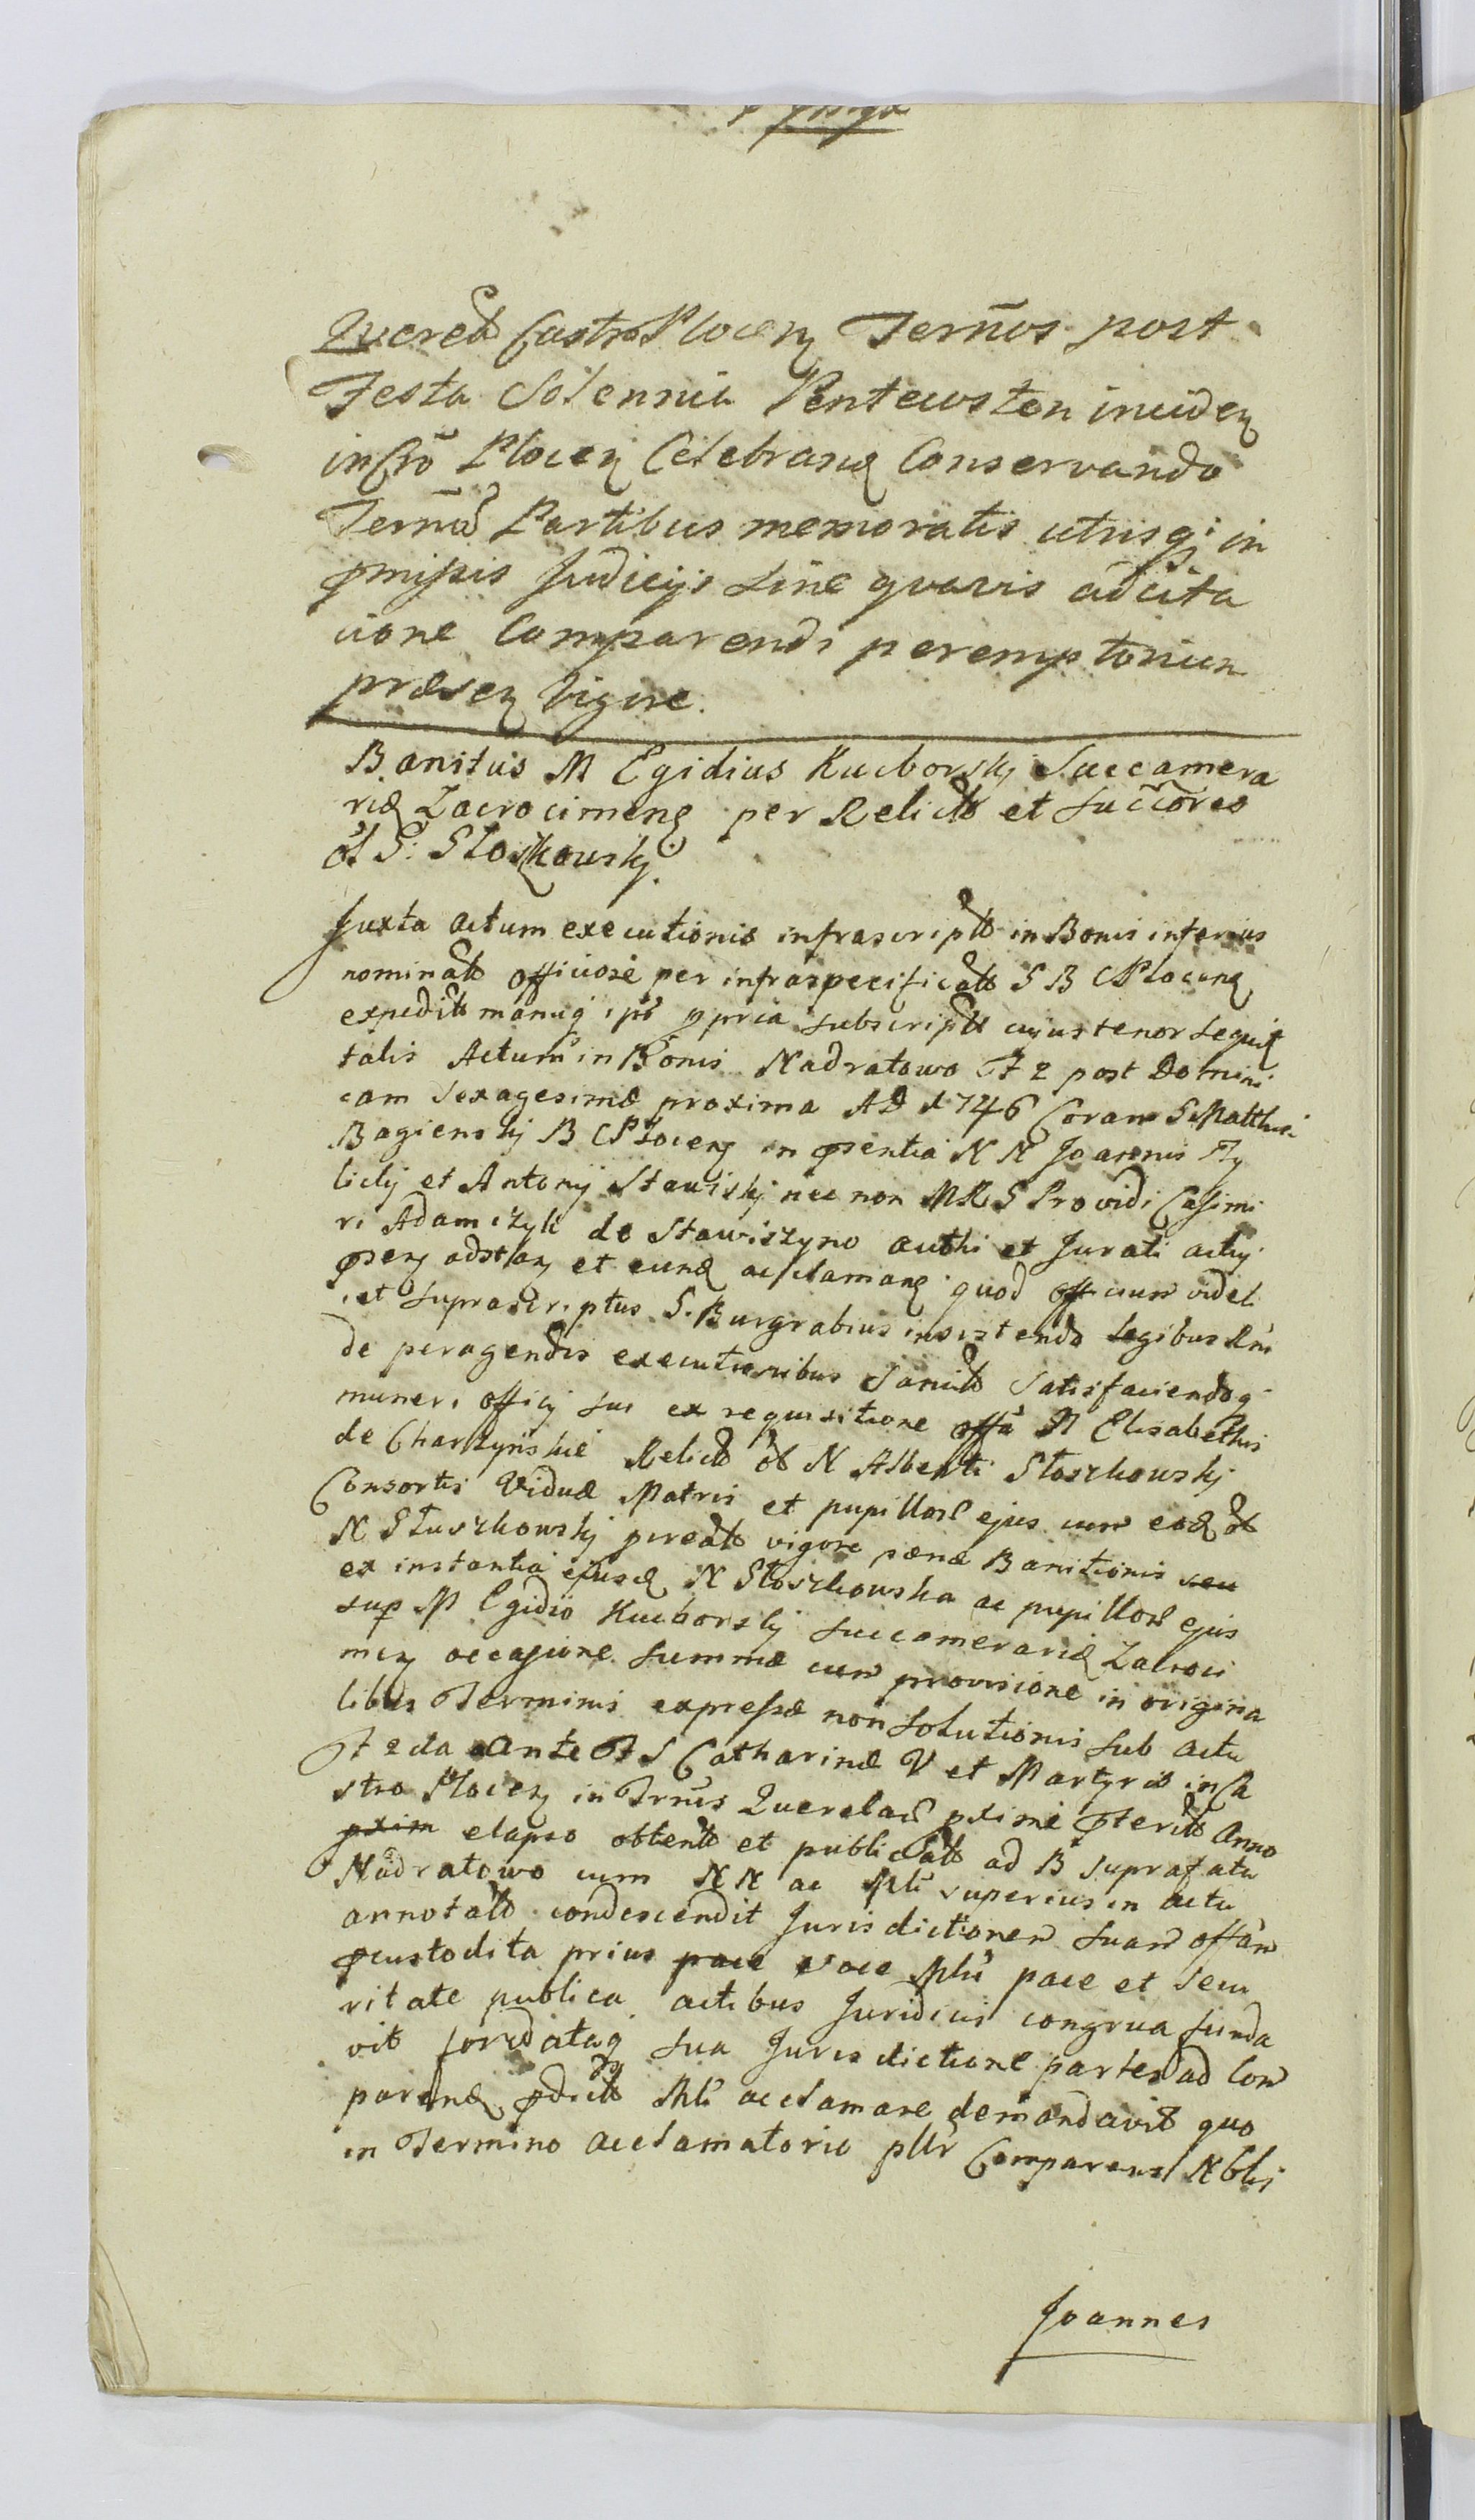 Querel Castro Plocen Termõs post
Festa Solennia Pentecosten inciden
in Crõ Plocen Celebran Conservando
Termõ Partibus memoratis utrisq in
pmissis Judicijs sine quavis adcita
cione Comparendi peremptorium
præsen vigore.
Banitus M Egidius Kucborskj Succamera
rid Zacrocimens per Relict et succores
ol G: Stoszkowskj.
Juxta actum executionis infrascript in Bonis inferius
nominat officiose per infraspecificat G B C Plocens
expedit manuq ips ppria subscript cujus tenor sequit
talis Actum in Bonis Nadratowo F 2 post Domini
cam Sexagesimæ proxima AD 1746 Coram G Matthia
Bagienskj B C Plocen in psentia N N Joannis Fy
lickj et Antonij Stawiskj nec non MRG Providi Casimi
ri Adamczyk de Stawiszyno authi et Jurati actuj
psen adstan et eund acclaman quod officium videl
icet suprascriptus G. Burgrabius insistendo legibus Rni
de peragendis executionibus sancit satisfaciendoq
muneri officij sui ex requisitione offa N Elisabethis
de Charzynskie Relict ol N Alberti Stoszkowskj
Consortis Viduæ Matris et pupillor ejus cum eod ol
N Stoszkowskj procreat vigore pænæ Banitionis seu
ex instantia ejusd N Stoszkowska ac pupillor ejus
sup M Egidio Kucborskj Succamerarid Zacroci
men occasione summæ cum provisione in origina
libus Terminis expressæ non solutionis sub actu
F 2da Ante F S Catharinæ V et Martyris in Ca
stro Plocen in Trnis Querelar pxime pterit Anno
pxim elapso obtent et publicat ad B suprafata
Nadratowo cum N N ac Mli superius in actu
annotat condescendit Jurisdictionem suam offam
pcustodita prius pace voce Mli pace et secu
ritate publica actibus Juridicis congrua funda
vit fundataq sua Jurisdictione partes ad Com
parend pdict Mli acclamare demandavit quo
in Termino acclamatorio pllr Comparens Nblis
Joannes